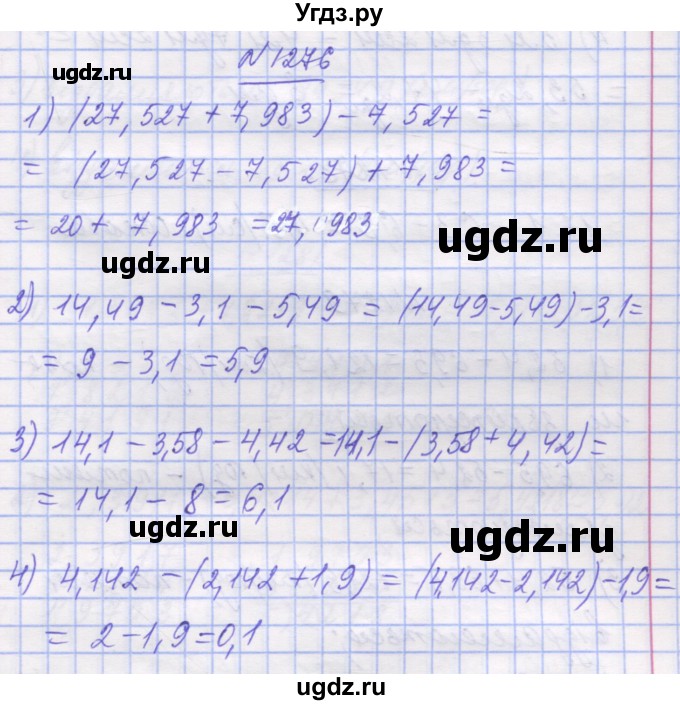 Угдз.ру
№1276
ugdz.ru
1) (27,527 + 7,983) - 7,527 =
= (27,527 - 7,527) + 7,983 =
= 20 + 7,983 = 27,983
ugdz.ru
ugdz.ru
2) 14,49 - 3,1 - 5,49 = (14,49-5,49) - 3,1 =
= 9 - 3,1 = 5,9
3) 14,1 - 3,58 - 4,42 = 14,1 - (3,58 + 4,42) =
= 14,1 - 8 = 6,1
ugdz.ru
ugdz.ru
4) 4,142 - (2,142 + 1,9) = (4,142 - 2,142) - 1,9 =
= 2 - 1,9 = 0,1
ugdz.ru
ugdz.ru